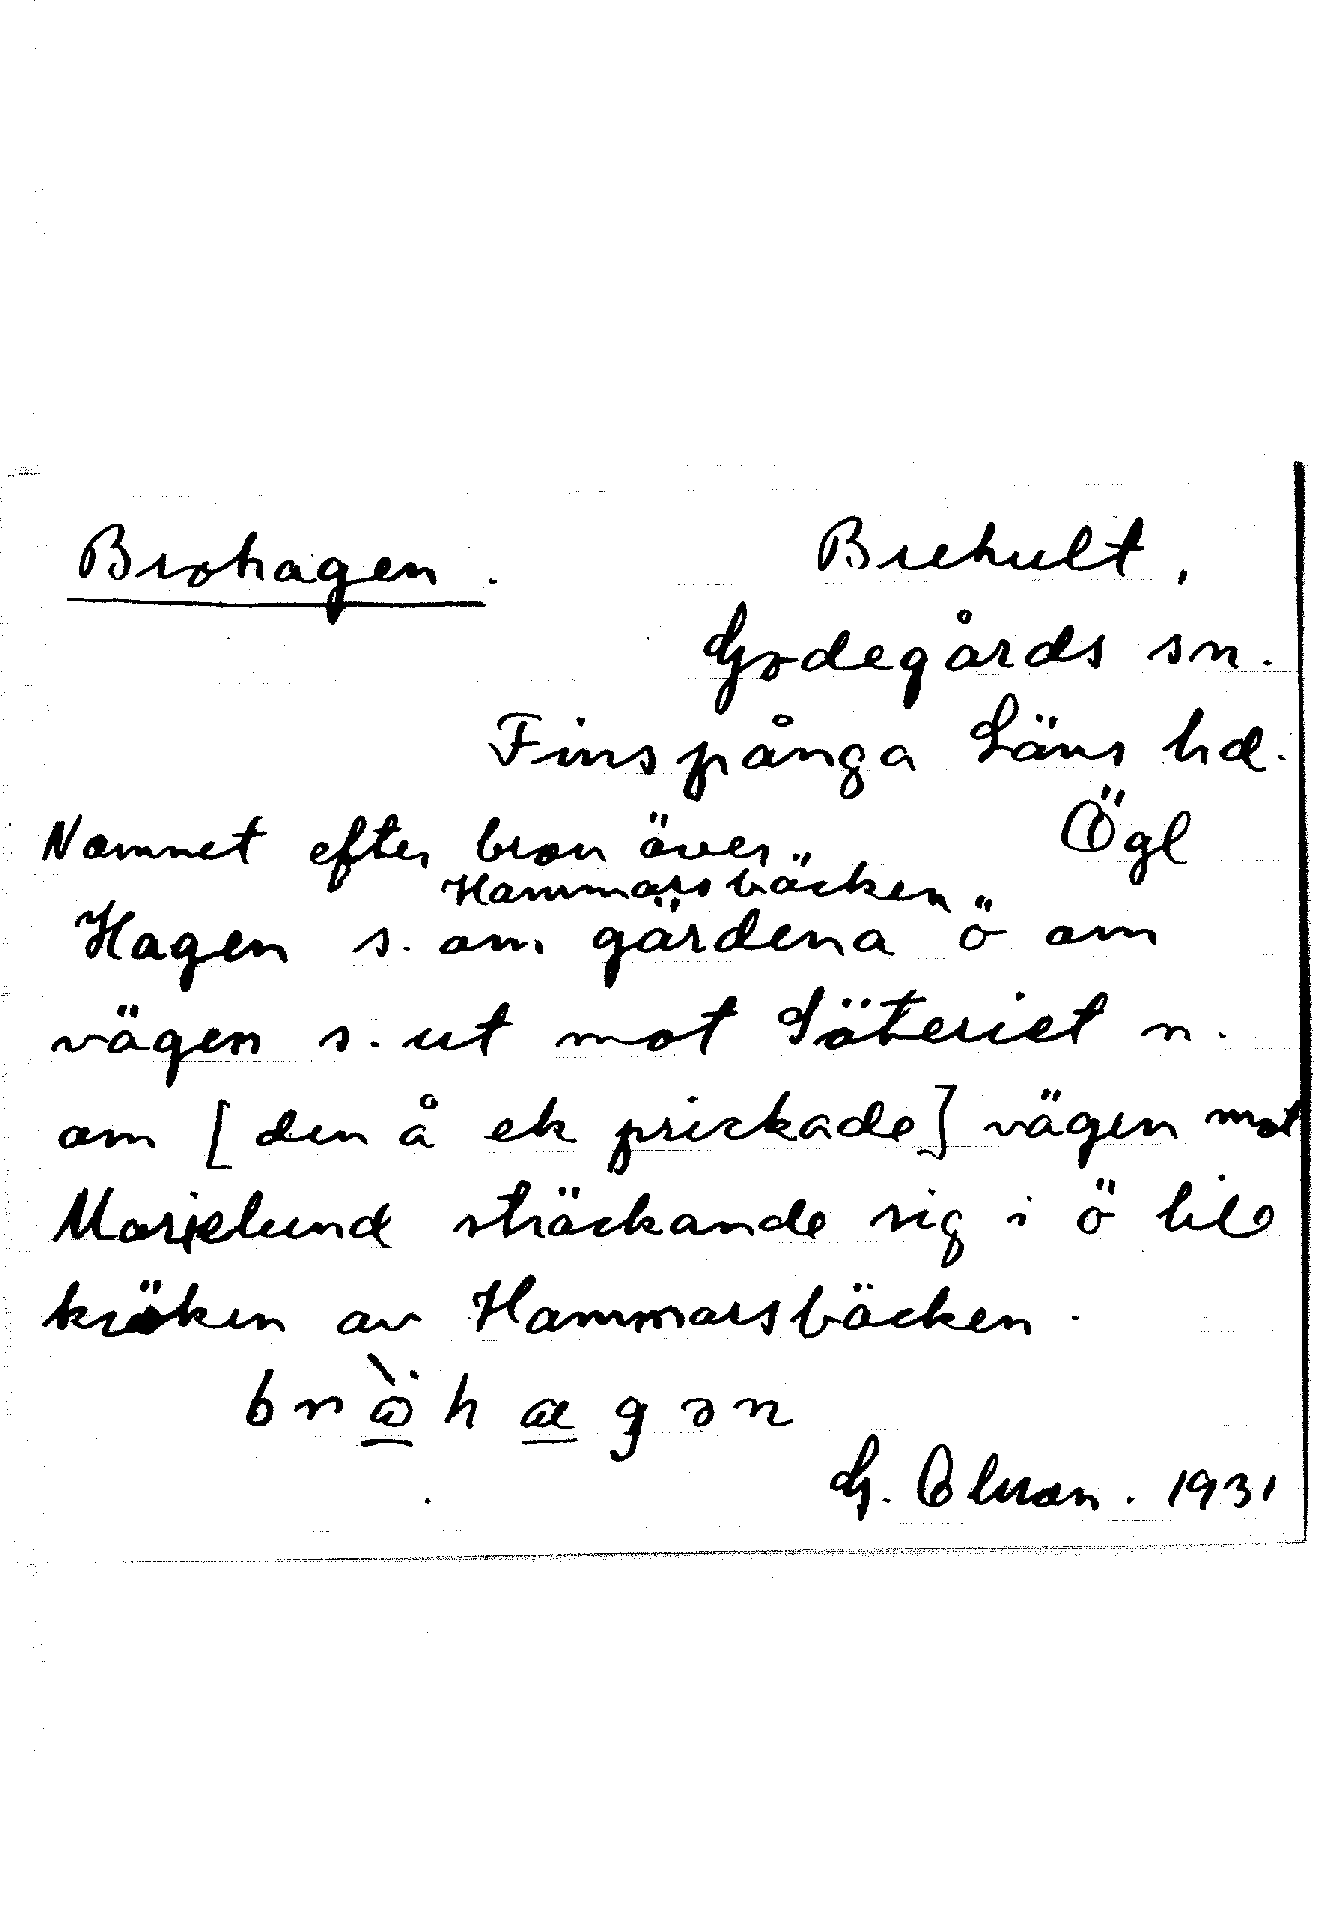 Brohagen.
Brehult,
Godegårds sn.
Finspånga Läns hd.
Ögl
Namnet efter bron över
Hammarsbäcken
Hagen s. om gärdena ö om
vägen s. ut mot Säteriet n.
om [den å ek prickade] vägen mot
Marielund sträckande sig i ö till
kröken av Hammarsbäcken.
G. Olsson. 1931